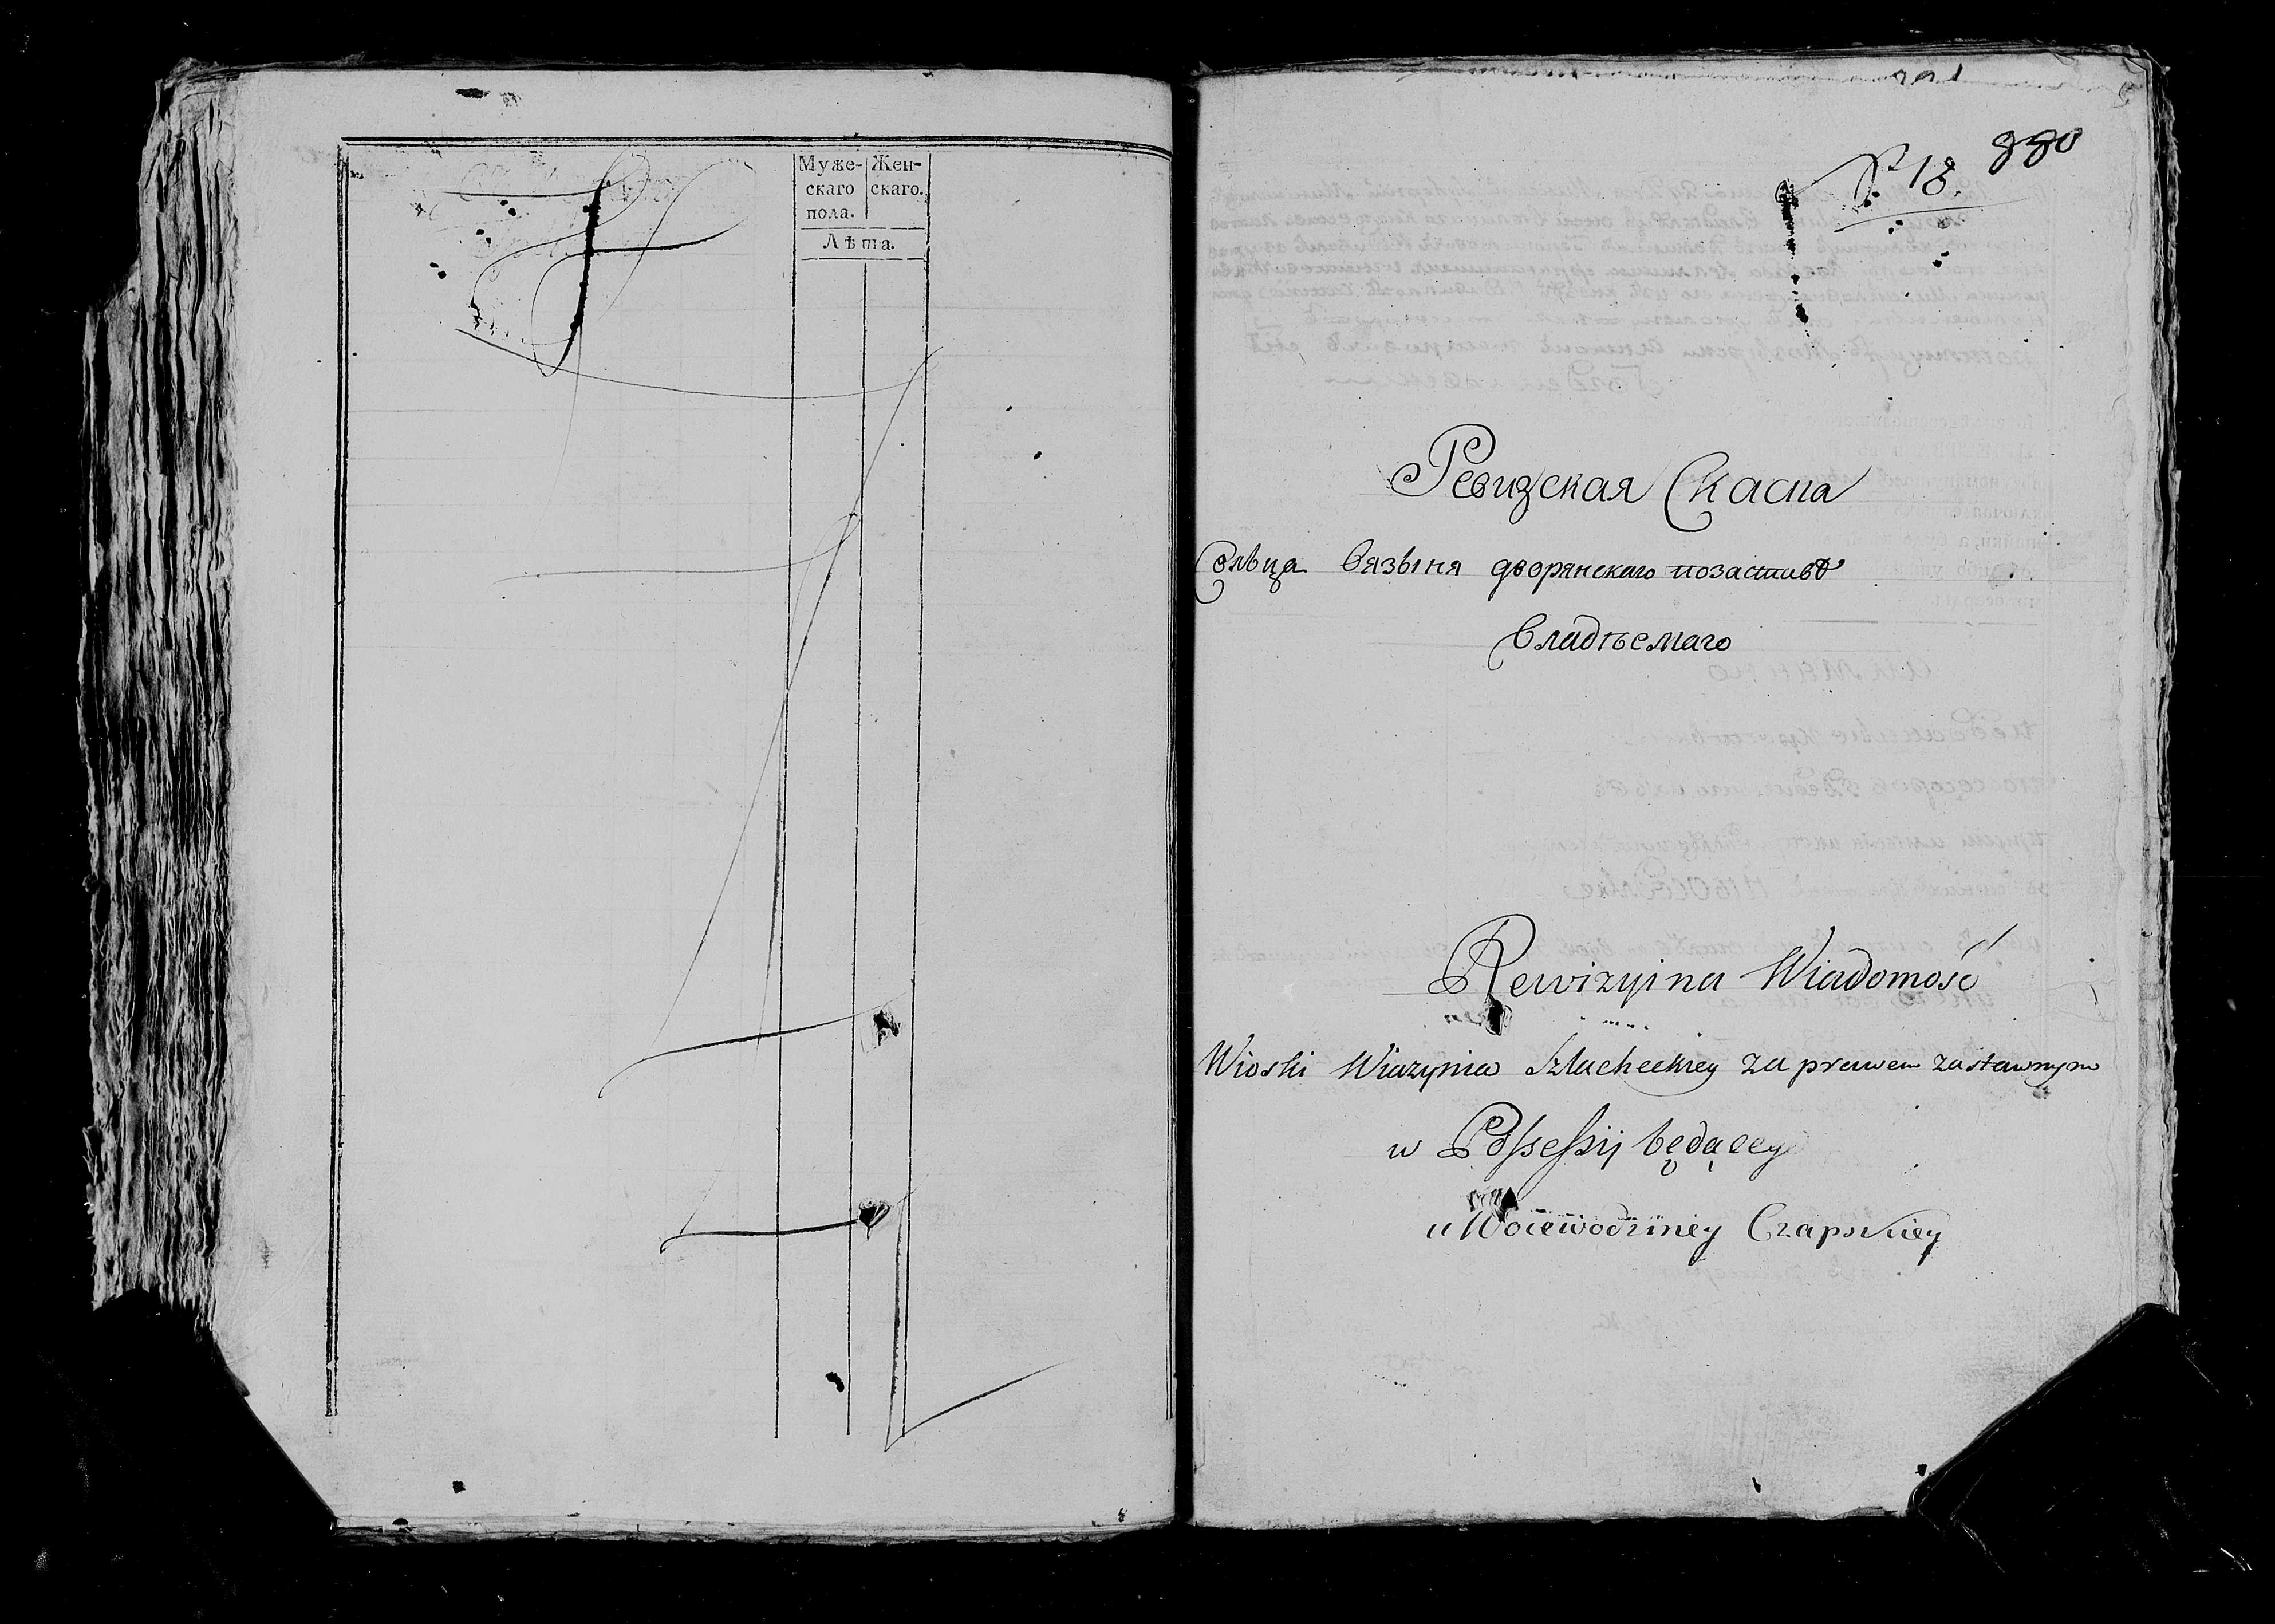 Муже-
скаго
пола.
Жен-
скаго.
Лѣта.
№ 18. 880
Ревизская Скаска
Сельца Вязыня дворянскаго позаставѣ
Владѣемаго
Rewizyina Wiadomość
Wioski Wiazynia Szlacheckiey za prawem zastawnym
w Possessyi będącey
u Woiewodziney Czapskiey